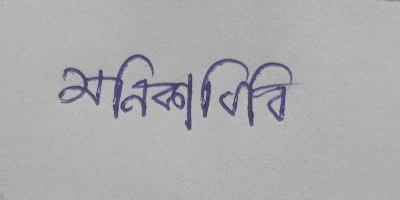 মনিকা বিবি